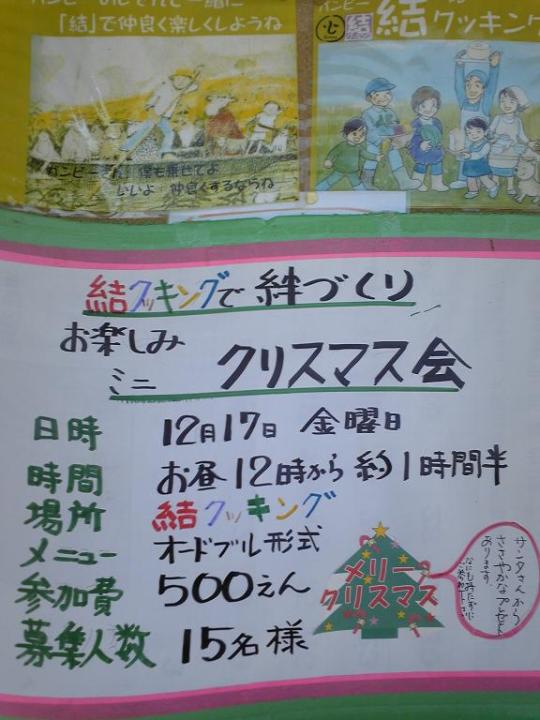 「結」で仲良く楽しくしようね
ガンピーさん 僕も乗せてよ
いいよ 仲良くするならね
結 クッキング
結クッキングで 絆づくり
お楽しみ
ミニ クリスマス会
日時 12月17日 金曜日
時間 お昼12時から 約1時間半
場所 結クッキング
メニュー オードブル形式
参加費 500えん
募集人数 15名様
メリー
クリスマス
サンタさんから
ささやかなプレゼント
おります